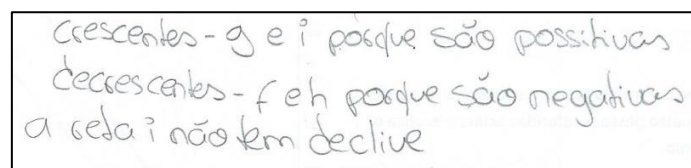 crescentes - g e i porque são possitivas
decrescentes - f e h porque são negativas
a reta i não tem declive